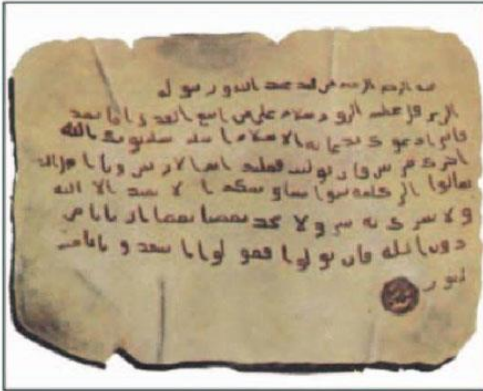 الله الرحمن الرحيم من محمد عبد الله ورسوله
الى هرقل عظيم الروم سلام على من اتبع الهدى اما بعد
فانى ادعوك بدعاية الاسلام اسلم تسلم يوتك الله
اجرك مرتين فان توليت فعليك اثم الاريسين ويا اهل
تعالوا الى كلمة سوا بيننا وبينكم الا نعبد الا الله
ولا نشرك به شيا ولا يتخذ بعضنا بعضا اربابا من
دون الله فان تولوا فقولوا اشهدوا بانا مس
لمون